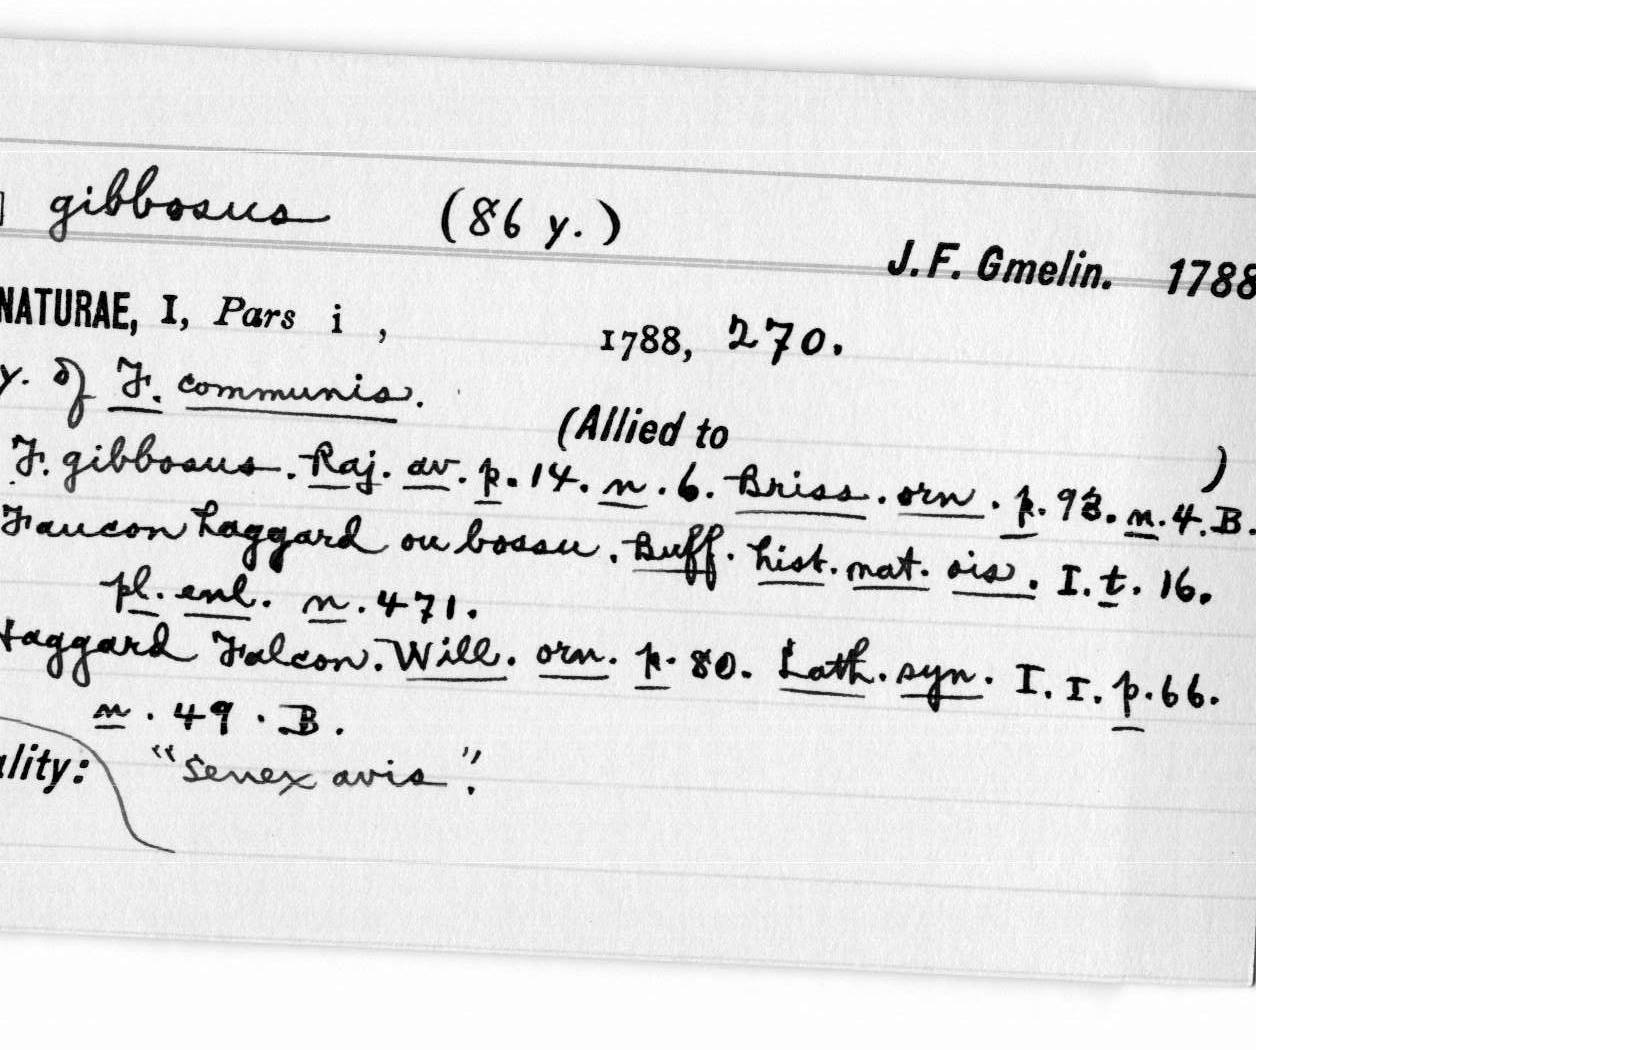 ] gibbosus (86 y.)
J. F. Gmelin. 1788
NATURAE, I, Pars i , 1788, 270.
y. of F. communis.
(Allied to )
F. gibbosus. Raj. av. p. 14. n. 6. Briss. orn. p. 93. n. 4. B.
Faucon haggard ou bossu. Buff. hist. nat. ois. I. t. 16.
pl. enl. n. 471.
Haggard Falcon. Will. orn. p. 80. Lath. syn. I. I. p. 66.
n. 49. B.
ality: "Senex avis".